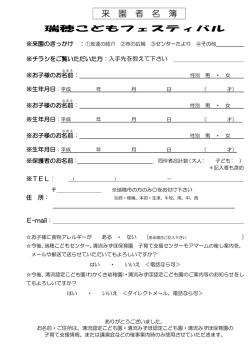 来 園 者 名 簿
瑞穂こどもフェスティバル
※来園のきっかけ ：①友達の紹介 ②市の広報 ③センターたより ④その他
※チラシをご覧いただいた方：入手先を教えて下さい
※お子様のお名前： 性別 男 ・ 女
※生年月日：平成 年 月 日 （ 才）
※お子様のお名前： 性別 男 ・ 女
※生年月日：平成 年 月 日 （ 才）
※お子様のお名前： 性別 男 ・ 女
※生年月日：平成 年 月 日 （ 才）
※保護者のお名前： 同伴者合計数（大人： 子ども： ）
＊記入者も含め
※ＴＥＬ： （ ） －
〒 ※瑞穂市の方のみ○をお付け下さい
住 所：
E-mail：
☆お子様に食物アレルギーが ある ・ ない
☆今後、瑞穂こどもセンター、清流みずほ保育園 子育て支援センターモアマームの催し案内を、
メールや郵送で送らせていただいてもよろしいですか？
はい ・ いいえ ＜電話なら可＞
☆今後、清流認定こども園（わかくさ幼稚園）・清流みずほ認定こども園のご案内等のお知らせをし
てもよろしいですか？
はい ・ いいえ ＜ダイレクトメール、電話なら可＞
ありがとうございました。
お名前・ご住所は、清流認定こども園・清流みずほ認定こども園・清流みずほ保育園の
子育て支援情報、または講演会などの催事案内時のみ使用させていただきます。